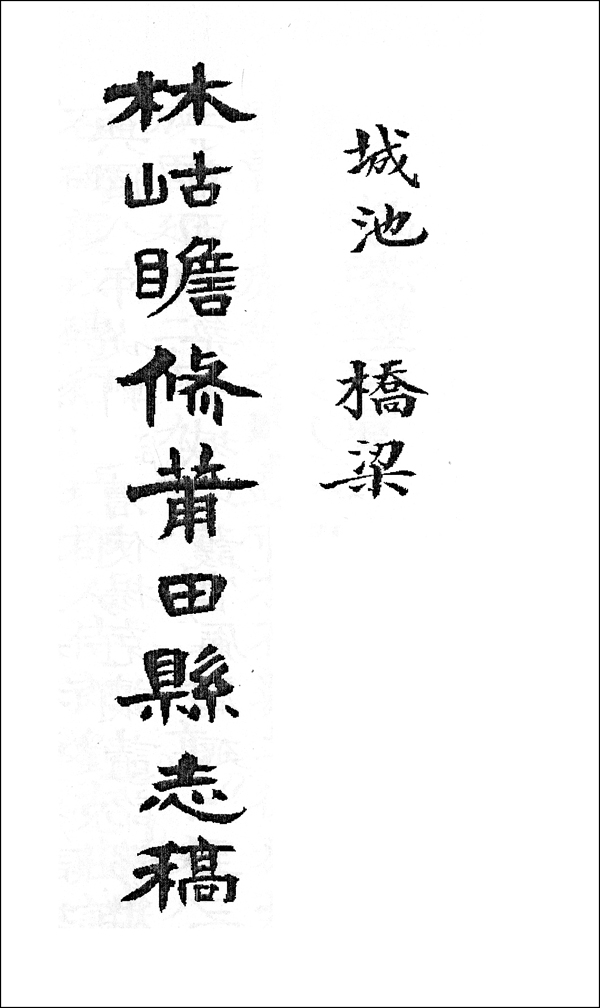 城池　橋梁
林岵瞻修莆田縣志稿